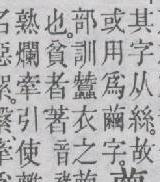 其字从絲故
或用爲繭字
部訓蠶衣之
也。貧者著音
熟爛牽引使
名惡